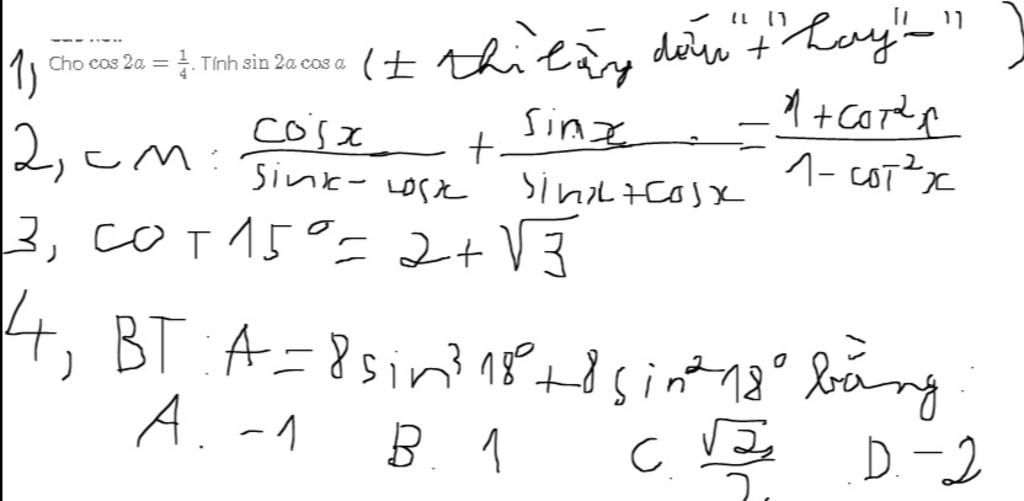 1, Cho cos 2a = 1/4. Tính sin 2a cos a (± thì lấy dấu "+" hay "-")
2, CM: cosx/(sinx - cosx) + sinx/(sinx + cosx) = (1 + cot²x)/(1 - cot²x)
3, COT 15° = 2 + √3
4, BT: A = 8sin³18° + 8sin²18° bằng:
A. -1 B. 1 C. √2/2 D. -2